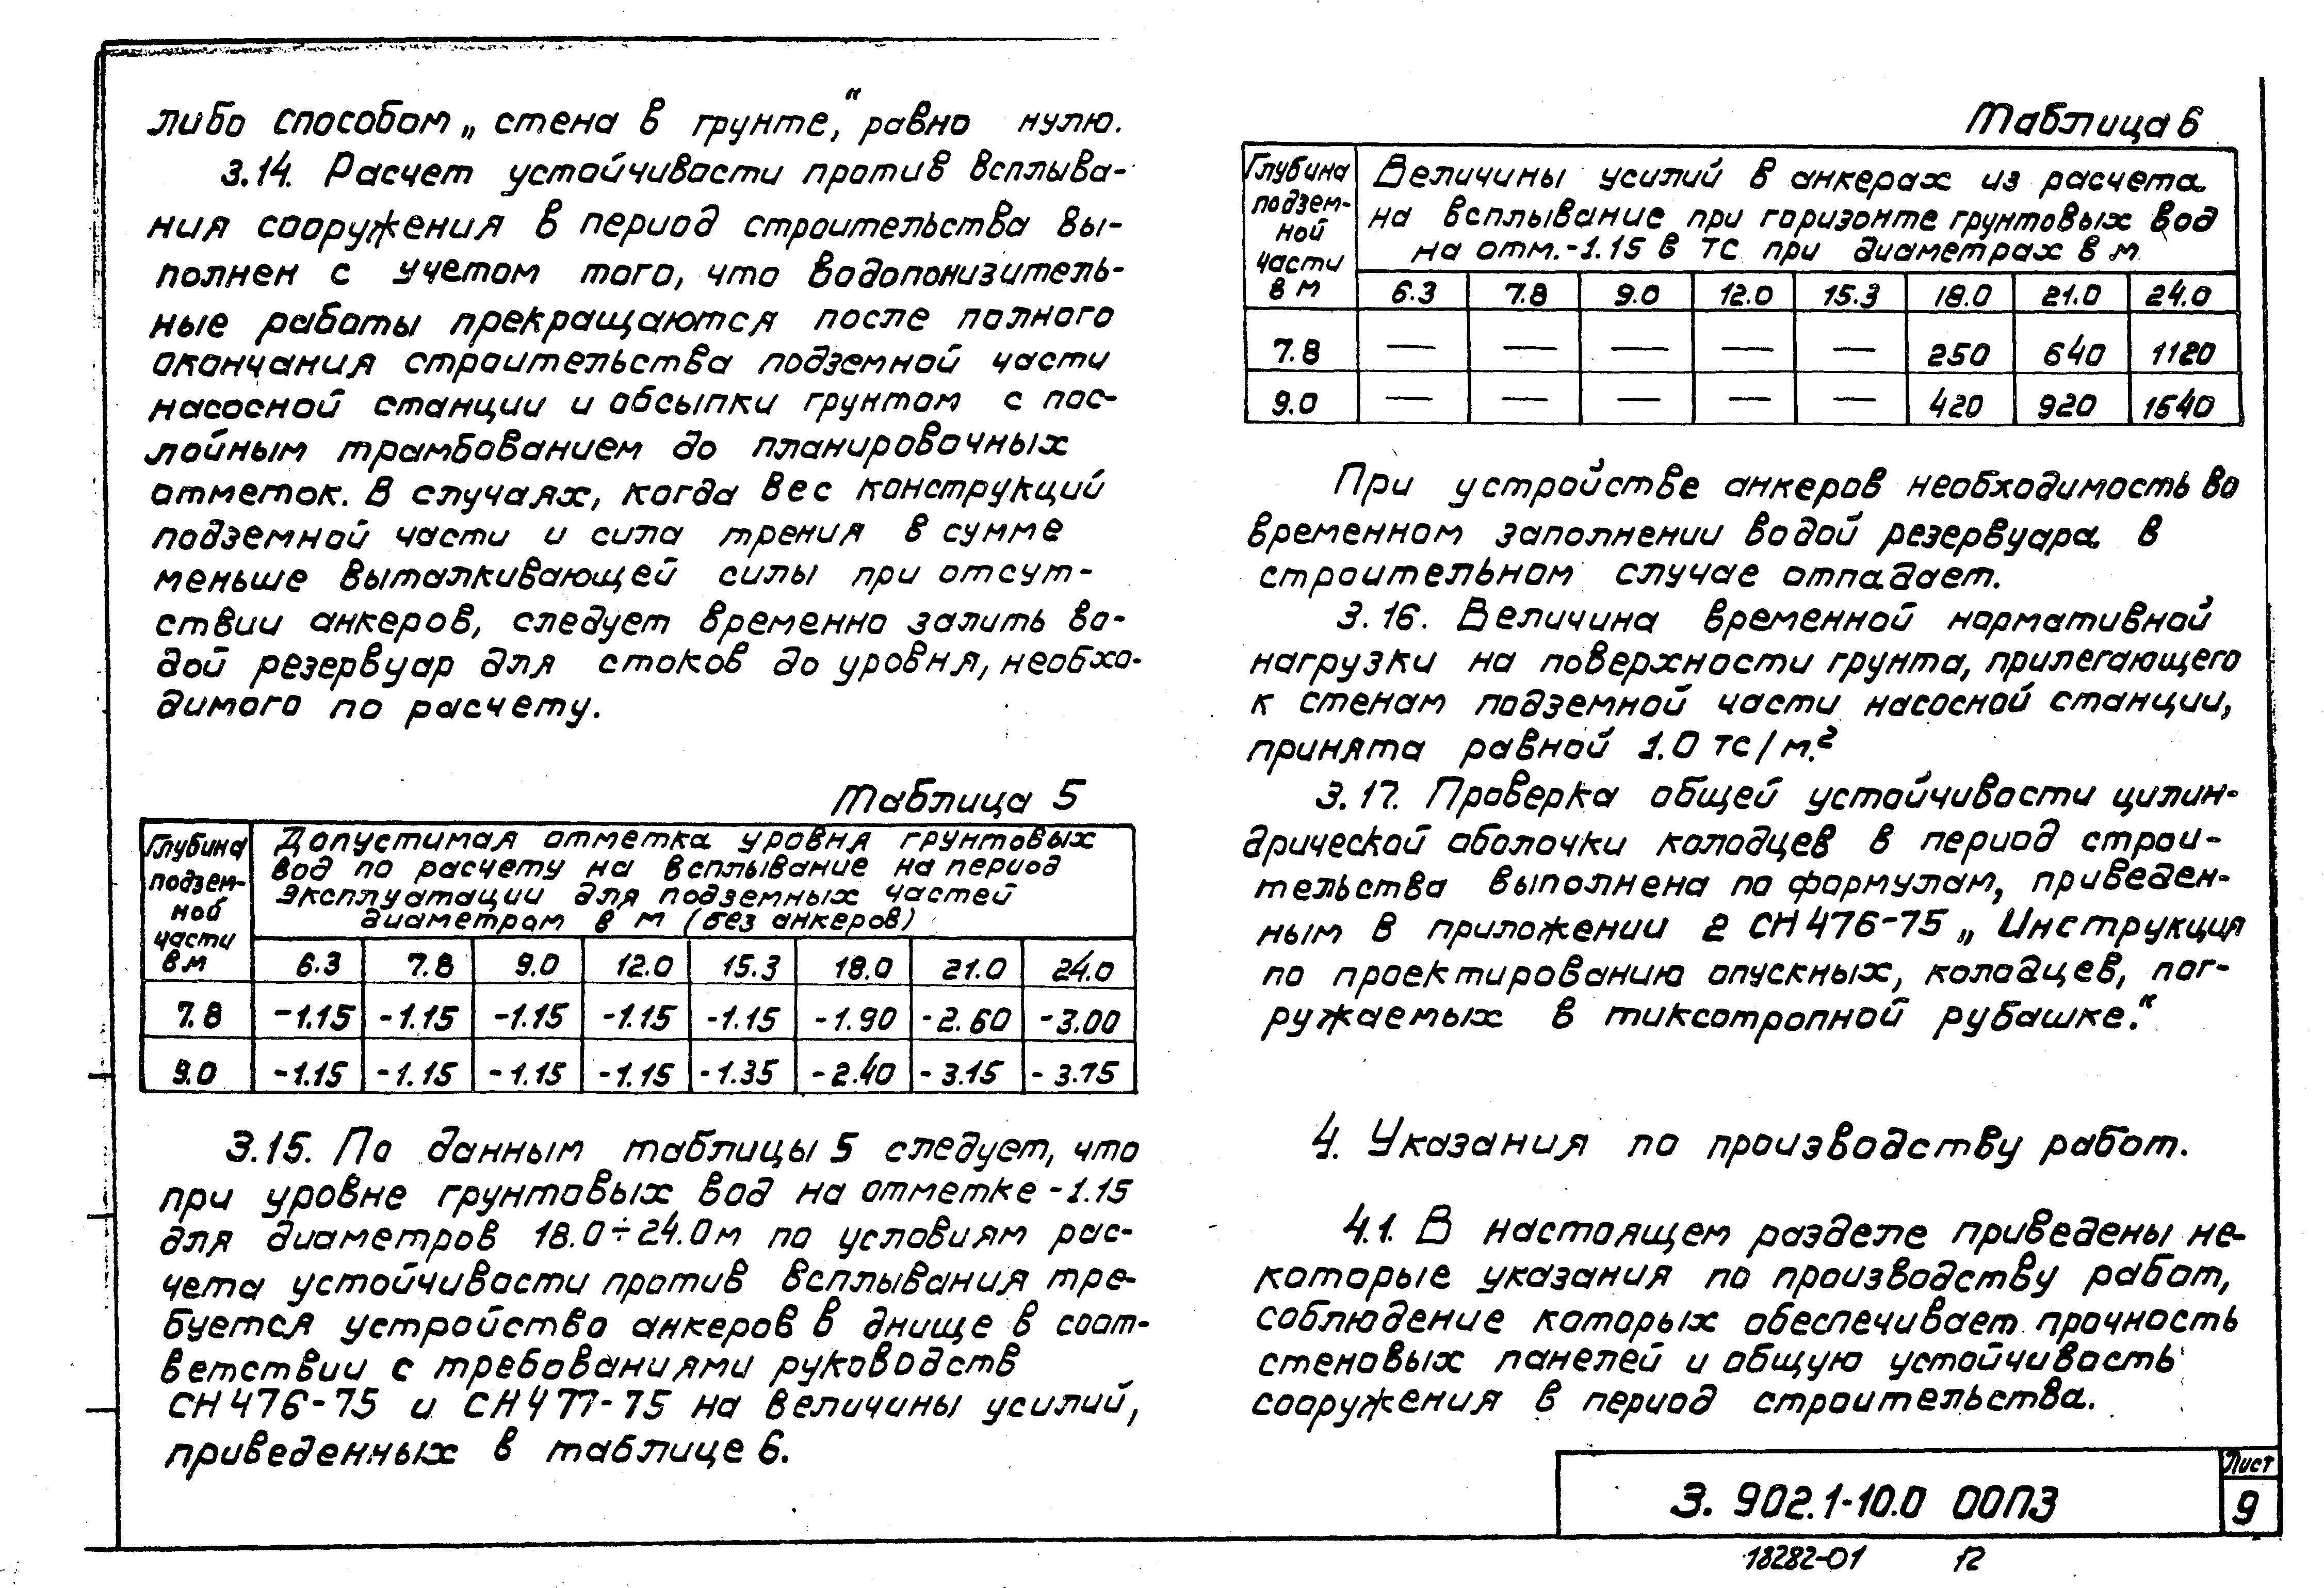 либо способом „стена в грунте,“ равно нулю.
3.14. Расчет устойчивости против всплыва-
ния сооружения в период строительства вы-
полнен с учетом того, что водопонизитель-
ные работы прекращаются после полного
окончания строительства подземной части
насосной станции и обсыпки грунтом с пос-
лойным трамбованием до планировочных
отметок. В случаях, когда вес конструкций
подземной части и сила трения в сумме
меньше выталкивающей силы при отсут-
ствии анкеров, следует временно залить во-
дой резервуар для стоков до уровня, необхо-
димого по расчету.
Таблица 5
Глубина подзем-ной части в м | Допустимая отметка уровня грунтовых
вод по расчету на всплывание на период
эксплуатации для подземных частей
диаметром в м (без анкеров)
6.3 7.8 9.0 12.0 15.3 18.0 21.0 24.0
7.8 -1.15 -1.15 -1.15 -1.15 -1.15 -1.90 -2.60 -3.00
9.0 -1.15 -1.15 -1.15 -1.15 -1.35 -2.40 -3.15 -3.75
3.15. По данным таблицы 5 следует, что
при уровне грунтовых вод на отметке -1.15
для диаметров 18.0÷24.0м по условиям рас-
чета устойчивости против всплывания тре-
буется устройство анкеров в днище в соот-
ветствии с требованиями руководств
СН 476-75 и СН 477-75 на величины усилий,
приведенных в таблице 6.
Таблица 6
Глубина подзем-ной части в м | Величины усилий в анкерах из расчета
на всплывание при горизонте грунтовых вод
на отм.-1.15 в тс при диаметрах в м
6.3 7.8 9.0 12.0 15.3 18.0 21.0 24.0
7.8 — — — — — 250 640 1120
9.0 — — — — — 420 920 1640
При устройстве анкеров необходимость во
временном заполнении водой резервуара в
строительном случае отпадает.
3.16. Величина временной нормативной
нагрузки на поверхности грунта, прилегающего
к стенам подземной части насосной станции,
принята равной 1.0 тс/м.²
3.17. Проверка общей устойчивости цилин-
дрической оболочки колодцев в период строи-
тельства выполнена по формулам, приведен-
ным в приложении 2 СН 476-75 „Инструкция
по проектированию опускных, колодцев, пог-
ружаемых в тиксотропной рубашке.“
4. Указания по производству работ.
4.1. В настоящем разделе приведены не-
которые указания по производству работ,
соблюдение которых обеспечивает прочность
стеновых панелей и общую устойчивость
сооружения в период строительства.
3. 902.1-10.0 00ПЗ
Лист
9
18282-01 12